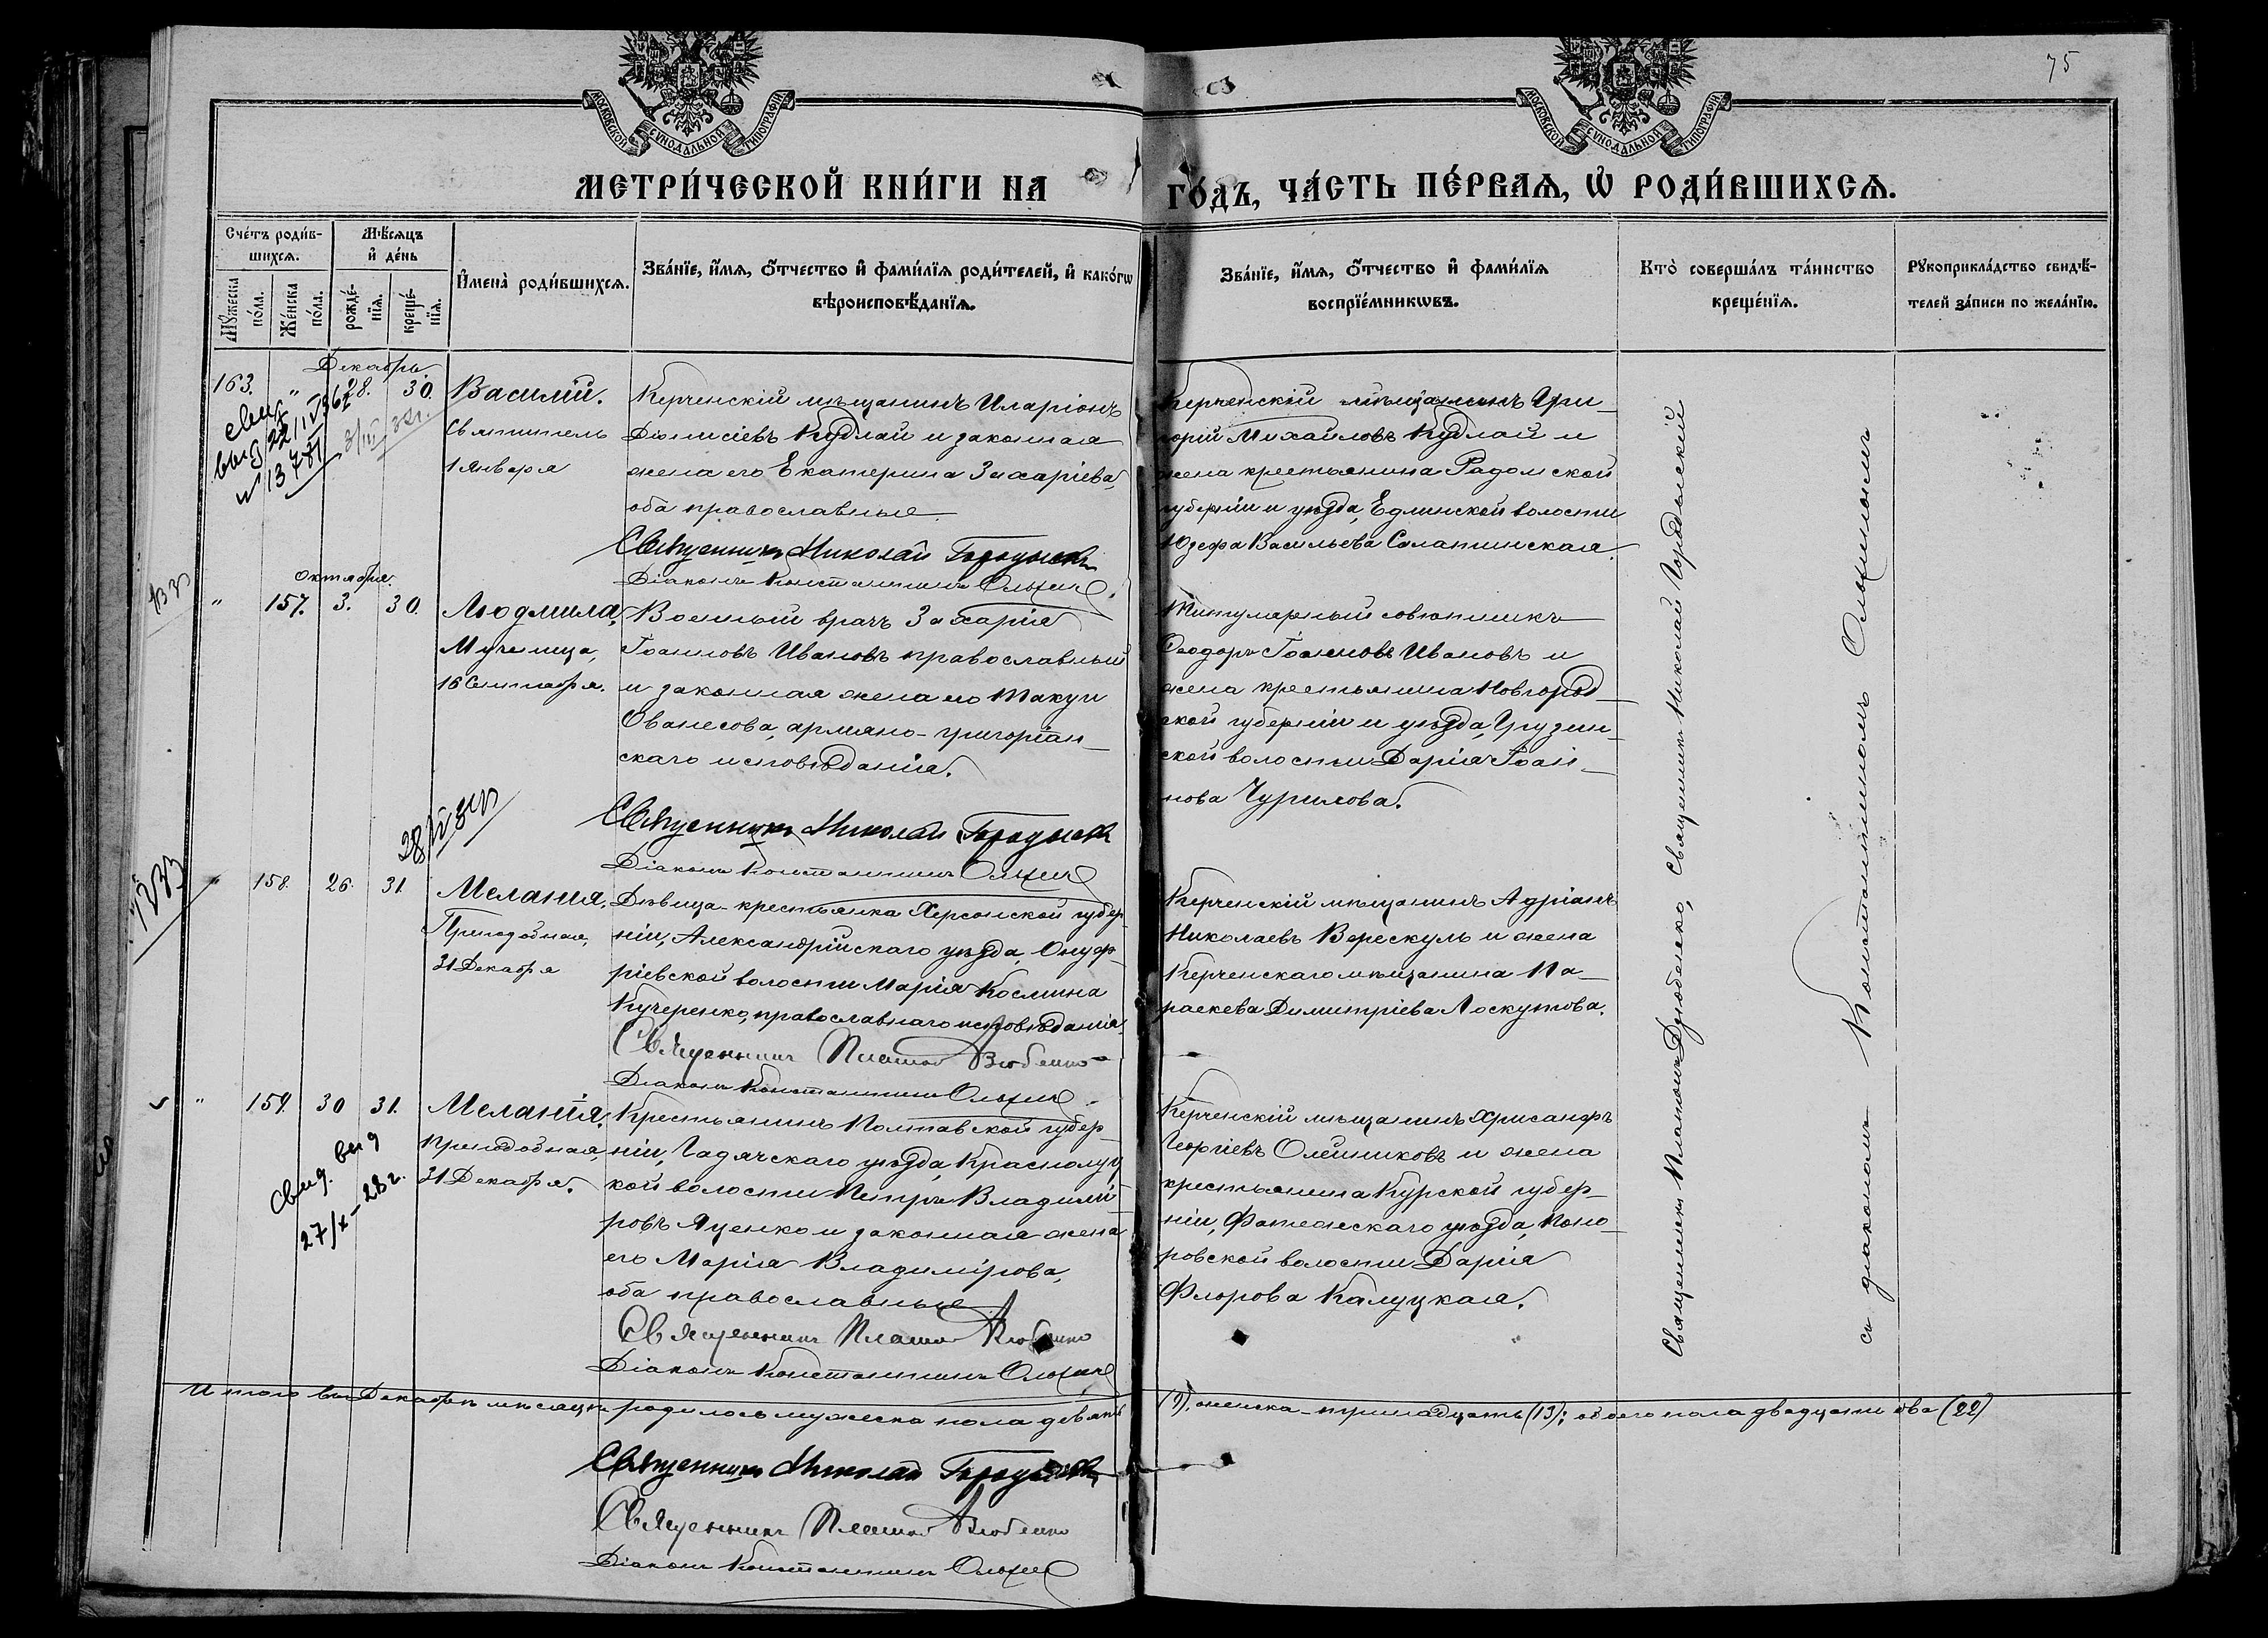 75
МОСКОВСКОЙ СУНОДАЛЬНОЙ ТИПОГРАФІИ
МОСКОВСКОЙ СУНОДАЛЬНОЙ ТИПОГРАФІИ
МЕТРИ́ЧЕСКОЙ КНИ́ГИ НА
ГО́ДЪ, ЧА́СТЬ ПЕ́РВАЯ, Ѡ҆ РОДИ́ВШИХСЯ.
Сче́тъ роди́в-
шихся.
Мѣ́сяцъ
и҆ де́нь
Мꙋ́жеска по́ла.
Же́нска по́ла.
рожде́-нїя.
креще́-нїя.
И҆мена̀ роди́вшихся.
Зва́нїе, и҆́мя, ѻ҆́тчество и҆ фами́лїя роди́телей, и҆ како́гѡ
вѣроисповѣ́данїя.
Зва́нїе, и҆́мя, ѻ҆́тчество и҆ фами́лїя
воспрїе́мникѡвъ.
Кто̀ соверша́лъ та́инство
креще́нїя.
Рꙋкоприкла́дство свидѣ́-
телей за́писи по жела́нїю.
Декабрь
163. " 28. 30. Василій.
Святитель
1 Января
свид
выд 22/IV 36г
№ 13781
Керченскій мѣщанинъ Иларіонъ
Діонисіевъ Кудлай и законная
жена его Екатерина Захаріева,
оба православные.
Священникъ Николай Городыскій
Діаконъ Константинъ
Керченскій мѣщанинъ Гри-
горій Михайловъ Кудлай и
жена крестьянина Радомской
губерніи и уѣзда, Едлинской волости
Юзефа Васильева Салапинская.
Октября.
" 157. 3. 30. Людмила,
Мученица,
16 Сентября.
Военный врачъ Захарія
Іоанновъ Ивановъ православный
и законная жена его Такуи
Ованесова, армяно-григоріан-
скаго исповѣданія.
Священникъ Николай Городыскій
Діаконъ Константинъ
Титулярный совѣтникъ
Ѳеодоръ Іоанновъ Ивановъ и
жена крестьянина Новгород-
ской губерніи и уѣзда, Грузин-
ской волости Дарія Іоан-
нова Чурилова.
" 158. 26. 31. Меланія,
Преподобная,
31 Декабря
Дѣвица-крестьянка Херсонской губер-
ніи, Александрійскаго уѣзда, Онуф-
ріевской волости Марія Космина
Кучеренко, православнаго исповѣданія.
Священникъ Платонъ
Діаконъ Константинъ
Керченскій мѣщанинъ Адріанъ
Николаевъ Верескуль и жена
Керченскаго мѣщанина Па-
раскева Димитріева Лоскутова.
" 159. 30 31. Меланія,
Преподобная,
31 Декабря.
свид. выд
27/X-28г.
Крестьянинъ Полтавской губер-
ніи, Гадячскаго уѣзда, Краснолуц-
кой волости Петръ Владимі-
ровъ Яценко и законная жена
его Марія Владимірова,
оба православные
Священникъ Платонъ
Діаконъ Константинъ
Керченскій мѣщанинъ Хрисанфъ
Георгіевъ Олейниковъ и жена
крестьянина Курской губер-
ніи, Фатежскаго уѣзда, Поно-
ровской волости Дарія
Флорова Калуцкая.
Священникъ Николай Городыскій
съ діакономъ Константиномъ
Итого въ Декабрѣ мѣсяцѣ родилось мужеска пола девять
(9), женска-тринадцать (13); обоего пола двадцать два (22)
Священникъ Николай Городыскій
Священникъ Платонъ
Діаконъ Константинъ